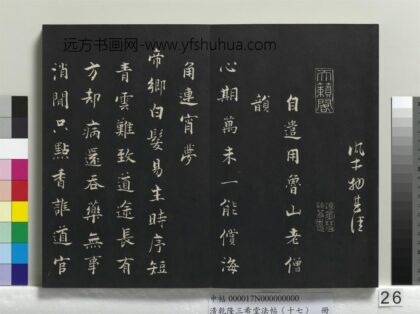 远方书画网-www.yfshuhua.com
天籟閣
自遣用魯山老僧
韻
心期萬未一能償海
角連宵夢
帝鄉白髮易生時序短
青雲難致道途長有
方却病還吞藥無事
消閒只點香誰道官
26
中帖 000017N000000000
清乾隆三希堂法帖（十七） 册